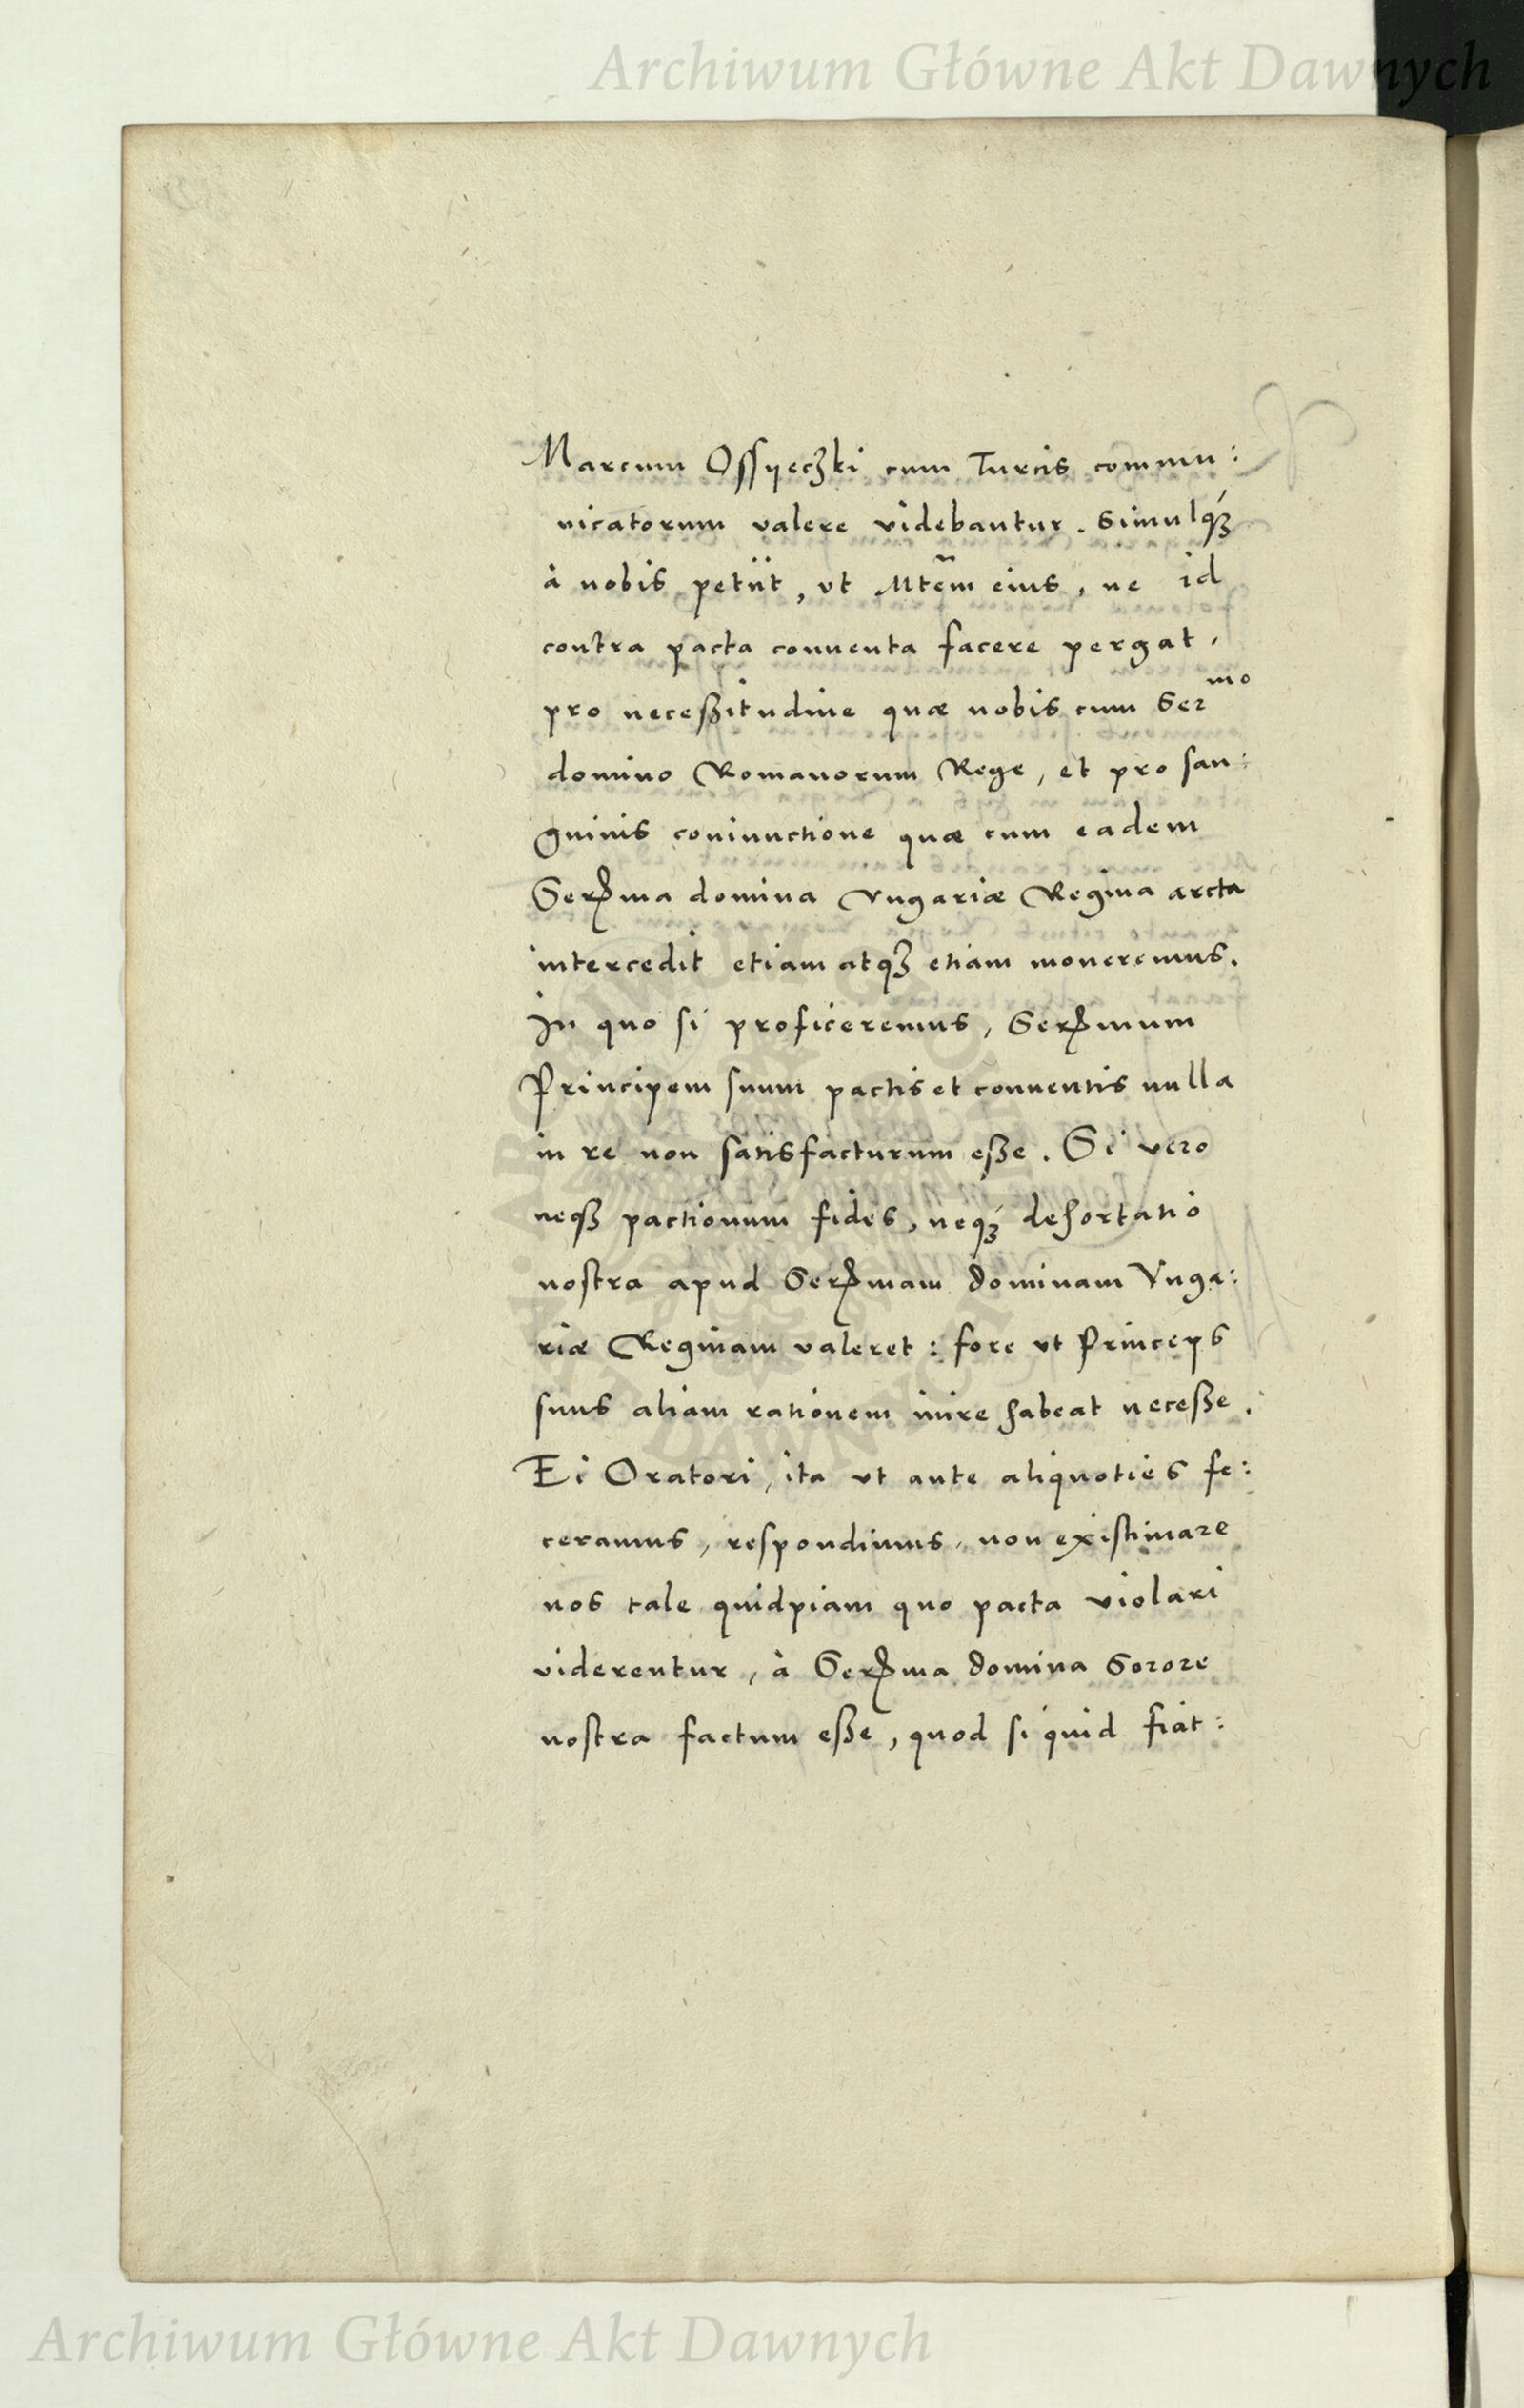 Archiwum Główne Akt Dawnych
Marcum Ossyeczki cum Turcis commu:
nicatorum valere videbantur. Simulq́ꝫ
à nobis petiit, vt Mtẽm eius, ne id
contra pacta conuenta facere pergat,
pro neceßitudine quæ nobis cum Serᵐᵒ
domino Romanorum Rege, et pro san:
guinis coniunctione quæ cum eadem
Serꝑma domina Vngariæ Regina arcta
intercedit etiam atqꝫ etiam moneremus.
In quo si proficeremus, Serꝑmum
Principem suum pactis et conuentis nulla
in re non satisfacturum eße. Si vero
neqꝫ pactionum fides, neq́ꝫ dehortatio
nostra apud Serꝑmam dominam Vnga:
riæ Reginam valeret: fore vt Princeps
suus aliam rationem inire habeat neceße.
Ei Oratori, ita vt ante aliquoties fe:
ceramus, respondimus, non existimare
nos tale quidpiam quo pacta violari
viderentur, à Serꝑma domina Sorore
nostra factum eße, quod si quid fiat:
Archiwum Główne Akt Dawnych